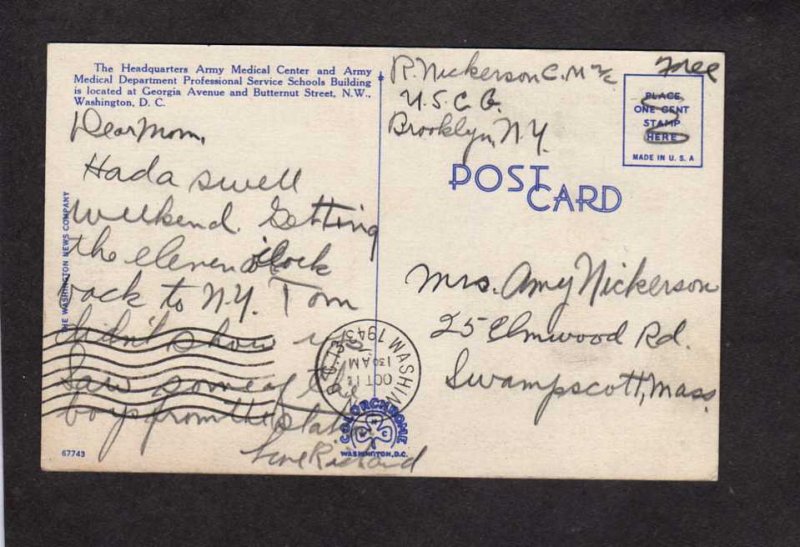 The Headquarters Army Medical Center and Army
Medical Department Professional Service Schools Building
is located at Georgia Avenue and Butternut Street, N.W.,
Washington, D. C.
Dear Mom,
Had a swell
weekend. Getting
the eleven o'clock
back to N.Y. Tom
didn't show up
Saw some of the
boys from the station
Love Richard
THE WASHINGTON NEWS COMPANY
67743
R. Nickerson C.M 2/c
U.S.C.G.
Brooklyn, N.Y.
Free
PLACE
ONE CENT
STAMP
HERE
MADE IN U.S.A
POST
CARD
Mrs. Amy Nickerson
25 Elmwood Rd.
Swampscott, Mass.
WASHIN
OCT 11
130 AM
1943
COLORCHROME
WASHINGTON, D.C.